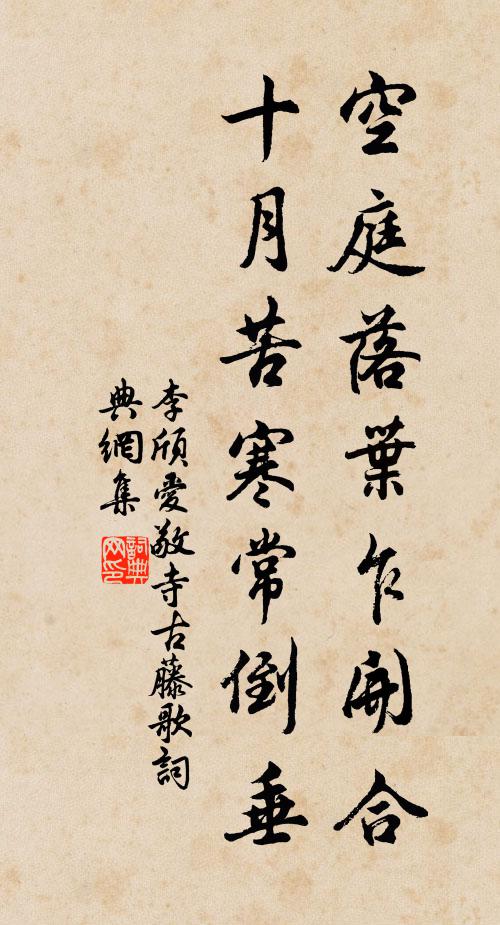 空庭落葉乍開合
十月苦寒常倒垂
李頎愛敬寺古藤歌詞
典網集
詞典網印